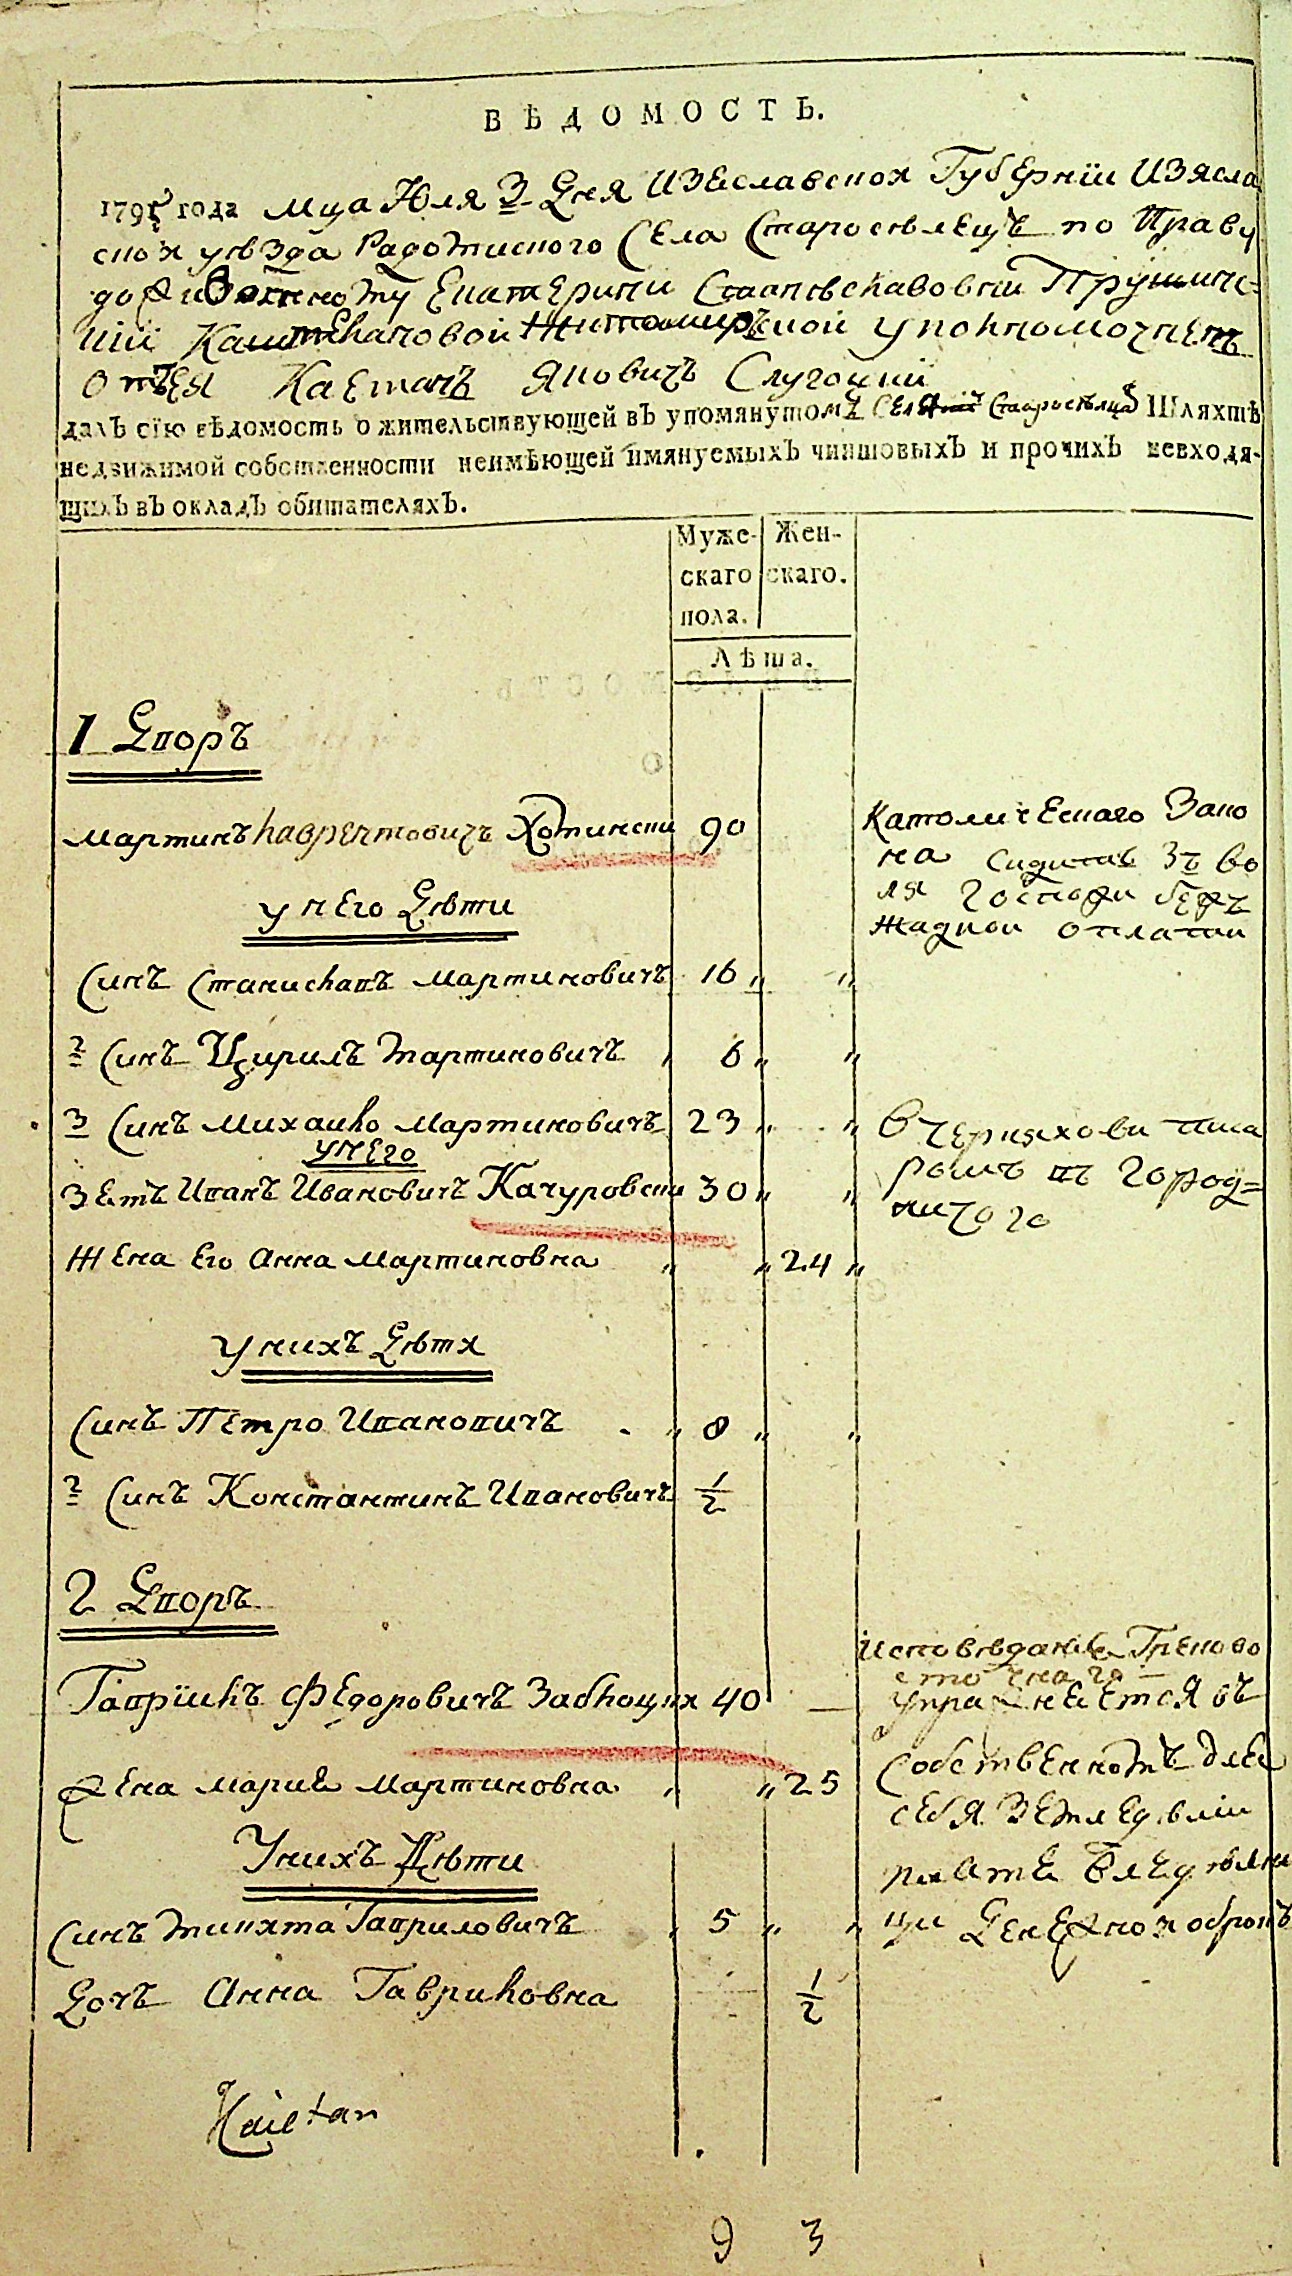 ВѢДОМОСТЬ.
1795 года Мца Юля 3 Дня Изеславской Губернїи Изясла
ской уѣзда Радомисного Села Старосѣлецъ по Праву
Екатерини
Житомирской уполномоченъ
отъ Ея Каетанъ Яновичъ Слугоцкий
далъ сїю вѣдомость о жительствующей въ упомянутомъ Шляхтѣ
недвижимой собственности неимѣющей имянуемыхъ чиншовыхъ и прочихъ невходя-
щихъ въ окладъ обитателяхъ.
Муже- Жен-
скаго скаго.
пола.
Лѣта.
1 Дворъ
Мартинъ Лаврентовичъ Хотински 90
Католическаго Зако
на сидитъ зъ во
ля Господи безъ
жадной оплати
у него Дѣти
Синъ Станиславъ Мартиновичъ 16 „ „
2 Синъ Цирилъ Мартиновичъ „ 6 „ „
3 Синъ Михайло Мартиновичъ 23 „ „
В Черняхови писа
ромъ въ Город=
ничого
у него
Зетъ Иванъ Ивановичъ Качуровски 30 „ „
Жена Его Анна Мартиновна „ „ 24 „
У нихъ Дѣтя
Синъ Петро Ивановичъ „ 8 „ „
2 Синъ Константинъ Ивановичъ 1/2
2 Дворъ
Гаврїилъ Федоровичъ Заблоцки 40 —
Исповѣдание Греково
сточнаго
упражняется въ
собственномъ длея
себя Земледѣлїи
Жена Мария Мартиновна „ „ 25
У нихъ Дѣти
Синъ Микита Гавриловичъ „ 5 „ „
Дочъ Анна Гавриловна 1/2
Kaietan
9 3